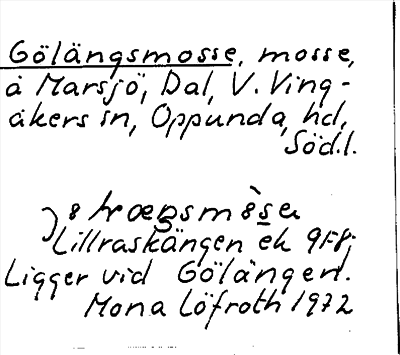 Gölängsmosse, mosse,
å Marsjö, Dal, V. Ving-
åkers sn, Oppunda, hd,
Söd.l.
Lillraskängen ek 9F8;
Ligger vid Gölängen.
Mona Löfroth 1972